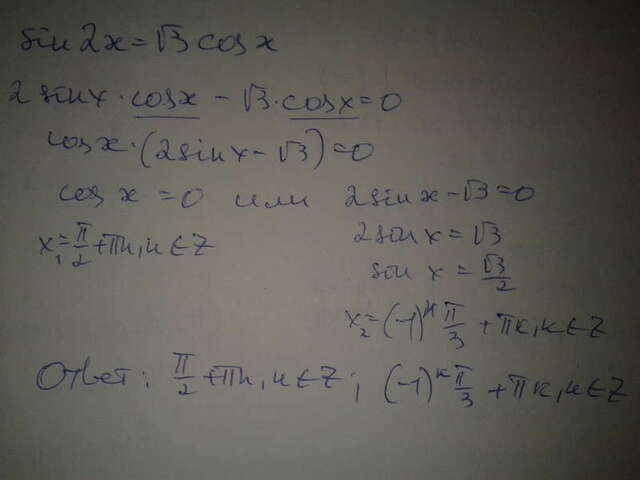 sin 2x = √3 cos x
2 sin x · cos x - √3 · cos x = 0
cos x · (2 sin x - √3) = 0
cos x = 0 или 2 sin x - √3 = 0
x₁ = π/2 + πn, n ∈ Z
2 sin x = √3
sin x = √3/2
x₂ = (-1)ᵏ π/3 + πk, k ∈ Z
Ответ: π/2 + πn, n ∈ Z; (-1)ᵏ π/3 + πk, k ∈ Z